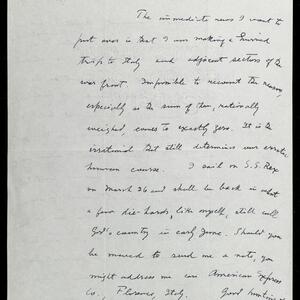 The immediate news I want to
put over is that I am making a hurried
trip to Italy and adjacent sectors of the
war front. Impossible to recount the reasons,
especially as the sum of them, rationally
weighed, comes to exactly zero. It is the
irrational that still determines our erratic
human course. I sail on S.S. Rex
on March 26 and shall be back in what
a few die-hards, like myself, still call
God's country in early June. Should you
be moved to send me a note, you
might address me care American Express
Co., Florence, Italy. Good hunting